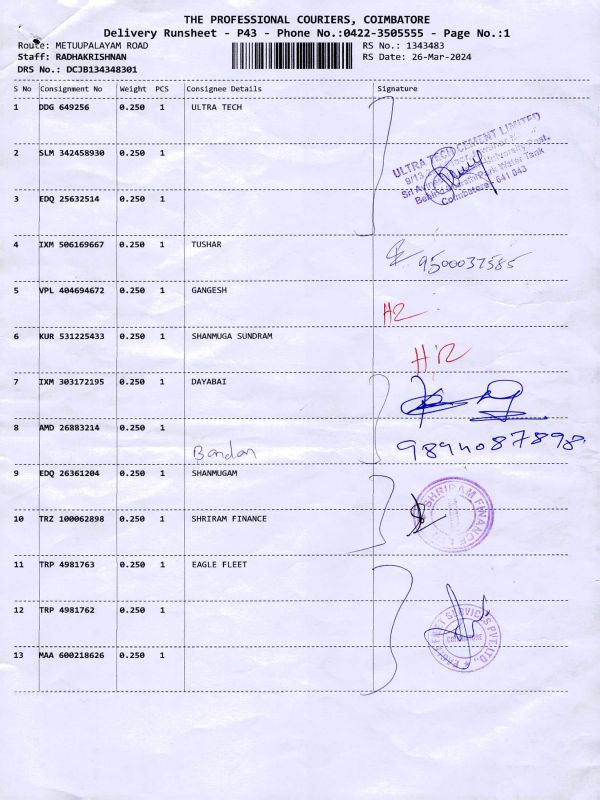 THE PROFESSIONAL COURIERS, COIMBATORE
Delivery Runsheet - P43 - Phone No.:0422-3505555 - Page No.:1
Route: METUUPALAYAM ROAD RS No.: 1343483
Staff: RADHAKRISHNAN RS Date: 26-Mar-2024
DRS No.: DCJB134348301
S No Consignment No Weight PCS Consignee Details Signature
1 DDG 649256 0.250 1 ULTRA TECH
ULTRA TECH CEMENT LIMITED
Park Water Tank
Coimbatore - 641 043
2 SLM 342458930 0.250 1
3 EDQ 25632514 0.250 1
4 IXM 506169667 0.250 1 TUSHAR
9500037585
5 VPL 404694672 0.250 1 GANGESH
H2
6 KUR 531225433 0.250 1 SHANMUGA SUNDRAM
H12
7 IXM 303172195 0.250 1 DAYABAI
8 AMD 26883214 0.250 1
Bandan 9894087898
9 EDQ 26361204 0.250 1 SHANMUGAM
10 TRZ 100062898 0.250 1 SHRIRAM FINANCE
SHRIRAM FINANCE
11 TRP 4981763 0.250 1 EAGLE FLEET
12 TRP 4981762 0.250 1
SERVICES PVT.LTD.,
COIMBATORE
13 MAA 600218626 0.250 1